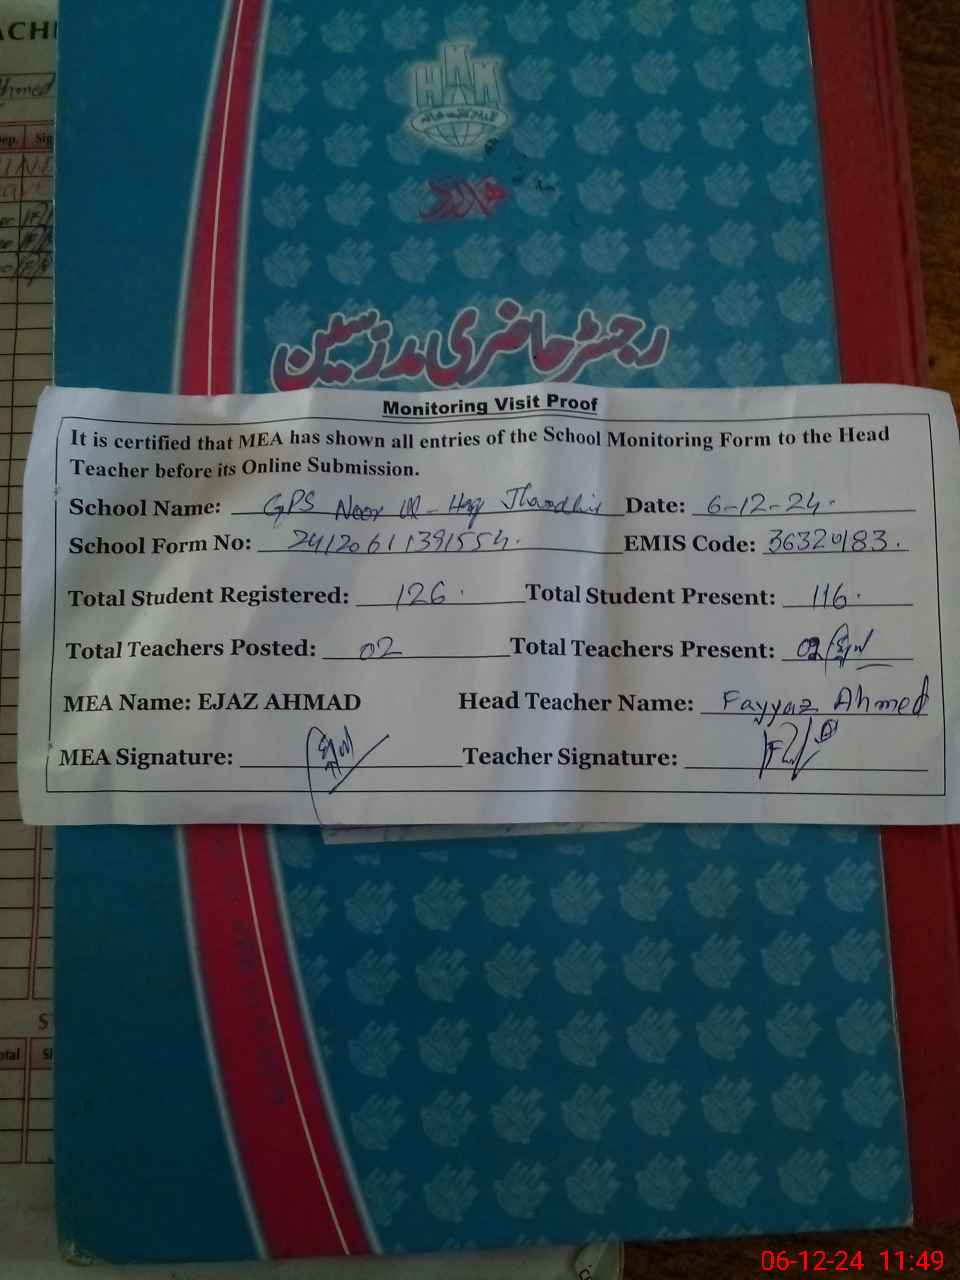 ACH
hmed
ep. Sig
HMK
رجسٹر حاضری مدرسین
Monitoring Visit Proof
It is certified that MEA has shown all entries of the School Monitoring Form to the Head
Teacher before its Online Submission.
School Name: GPS Noor Ul-Haq Jhandhir Date: 6-12-24.
School Form No: 24120611391554. EMIS Code: 36320183.
Total Student Registered: 126. Total Student Present: 116.
Total Teachers Posted: 02 Total Teachers Present: 02
MEA Name: EJAZ AHMAD Head Teacher Name: Fayyaz Ahmed
MEA Signature: Teacher Signature:
S
otal Si
06-12-24 11:49